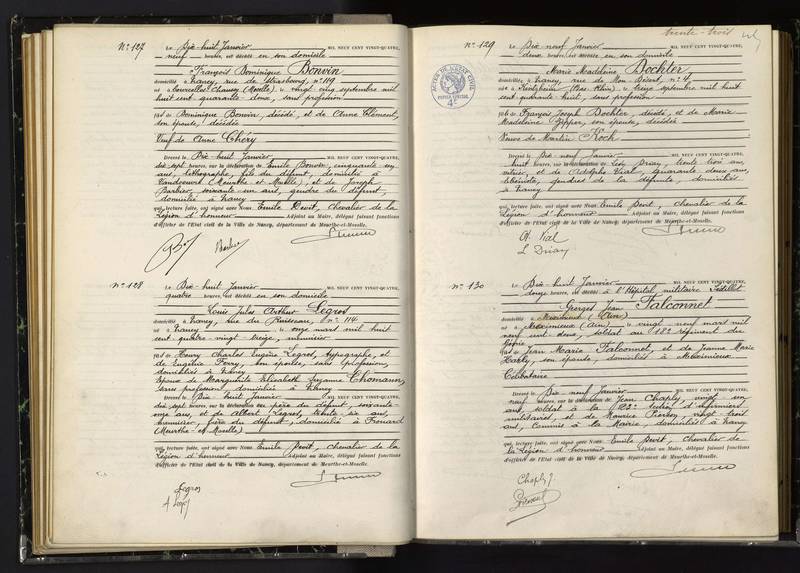 N° 127
Le Dix-huit Janvier MIL NEUF CENT VINGT-QUATRE,
neuf heures, est décédé en son domicile
François Dominique Bonvin
domicilié à Nancy, rue de Strasbourg, n° 119
né à (Moselle) le vingt cinq septembre mil
huit cent quarante-deux, sans profession
fils de Dominique Bonvin, décédé, et de Anne Clément,
son épouse, décédée
Veuf de Anne Chéry
Dressé le Dix-huit Janvier MIL NEUF CENT VINGT-QUATRE,
dix sept heures, sur la déclaration de Emile Bonvin, cinquante un
ans, lithographe, fils du défunt, domicilié à
Vandoeuvre (Meurthe et Moselle), et de Joseph
Barbier, soixante un ans, gendre du défunt,
domicilié à Nancy
qui, lecture faite, ont signé avec Nous Emile Devit, Chevalier de la
Légion d'honneur Adjoint au Maire, délégué faisant fonctions
d'officier de l'Etat civil de la Ville de Nancy, département de Meurthe-et-Moselle.
N° 128
Le Dix-huit Janvier MIL NEUF CENT VINGT-QUATRE,
quatre heures, est décédé en son domicile
Louis Jules Arthur Legros
domicilié à Nancy, rue du Ruisseau, n° 114
né à Nancy le onze mars mil huit
cent quatre vingt treize, menuisier
fils de Henry Charles Eugène Legros, typographe, et
de Eugénie Ferry, son épouse, sans profession,
domiciliés à Nancy
Epoux de Marguerite Elisabeth Suzanne Thomann,
sans profession, domiciliée à Nancy
Dressé le Dix huit Janvier MIL NEUF CENT VINGT-QUATRE,
dix sept heures, sur la déclaration du père du défunt, soixante-
onze ans, et de Albert Legros, trente six ans,
menuisier, frère du défunt, domicilié à Frouard
(Meurthe et Moselle)
qui, lecture faite, ont signé avec Nous Emile Devit, chevalier de la
Légion d'honneur Adjoint au Maire, délégué faisant fonctions
d'officier de l'Etat civil de la Ville de Nancy, département de Meurthe-et-Moselle.
Legros
trente-trois
N° 129
Le Dix-neuf Janvier MIL NEUF CENT VINGT-QUATRE,
deux heures, est décédée en son domicile
Marie Madeleine Bochler
domiciliée à Nancy, rue de Mon-Désert, n° 4
née à (Bas-Rhin), le treize septembre mil huit
cent quarante-huit, sans profession
fille de François Joseph Bochler, décédé, et de Marie
Madeleine son épouse, décédée
Veuve de Martin Koch
Dressé le Dix-neuf Janvier MIL NEUF CENT VINGT-QUATRE,
huit heures, sur la déclaration de trente trois ans,
et de Adolphe Vial, quarante deux ans,
ébéniste, gendres de la défunte, domiciliés
à Nancy
qui, lecture faite, ont signé avec Nous Emile Devit, chevalier de la
Légion d'honneur Adjoint au Maire, délégué faisant fonctions
d'officier de l'Etat civil de la Ville de Nancy, département de Meurthe-et-Moselle.
A. Vial
N° 130
Le Dix-huit Janvier MIL NEUF CENT VINGT-QUATRE,
douze heures, est décédé à l'Hôpital militaire Sédillot
Georges Jean Falconnet
domicilié à Meximieux (Ain)
né à Meximieux (Ain) le vingt neuf mars mil
neuf cent deux, soldat au 18e régiment du
Génie,
fils de Jean Marie Falconnet, et de Jeanne Marie
son épouse, domiciliés à Meximieux
Célibataire
Dressé le Dix-neuf Janvier MIL NEUF CENT VINGT-QUATRE,
neuf heures, sur la déclaration de Jean Chaply, vingt un
ans, soldat à la section d'infirmiers
militaires, et de Maurice vingt-trois
ans, commis à la Mairie, domiciliés à Nancy
qui, lecture faite, ont signé avec Nous Emile Devit, chevalier de
la Légion d'honneur Adjoint au Maire, délégué faisant fonctions
d'officier de l'Etat civil de la Ville de Nancy, département de Meurthe-et-Moselle.
Chaply J.